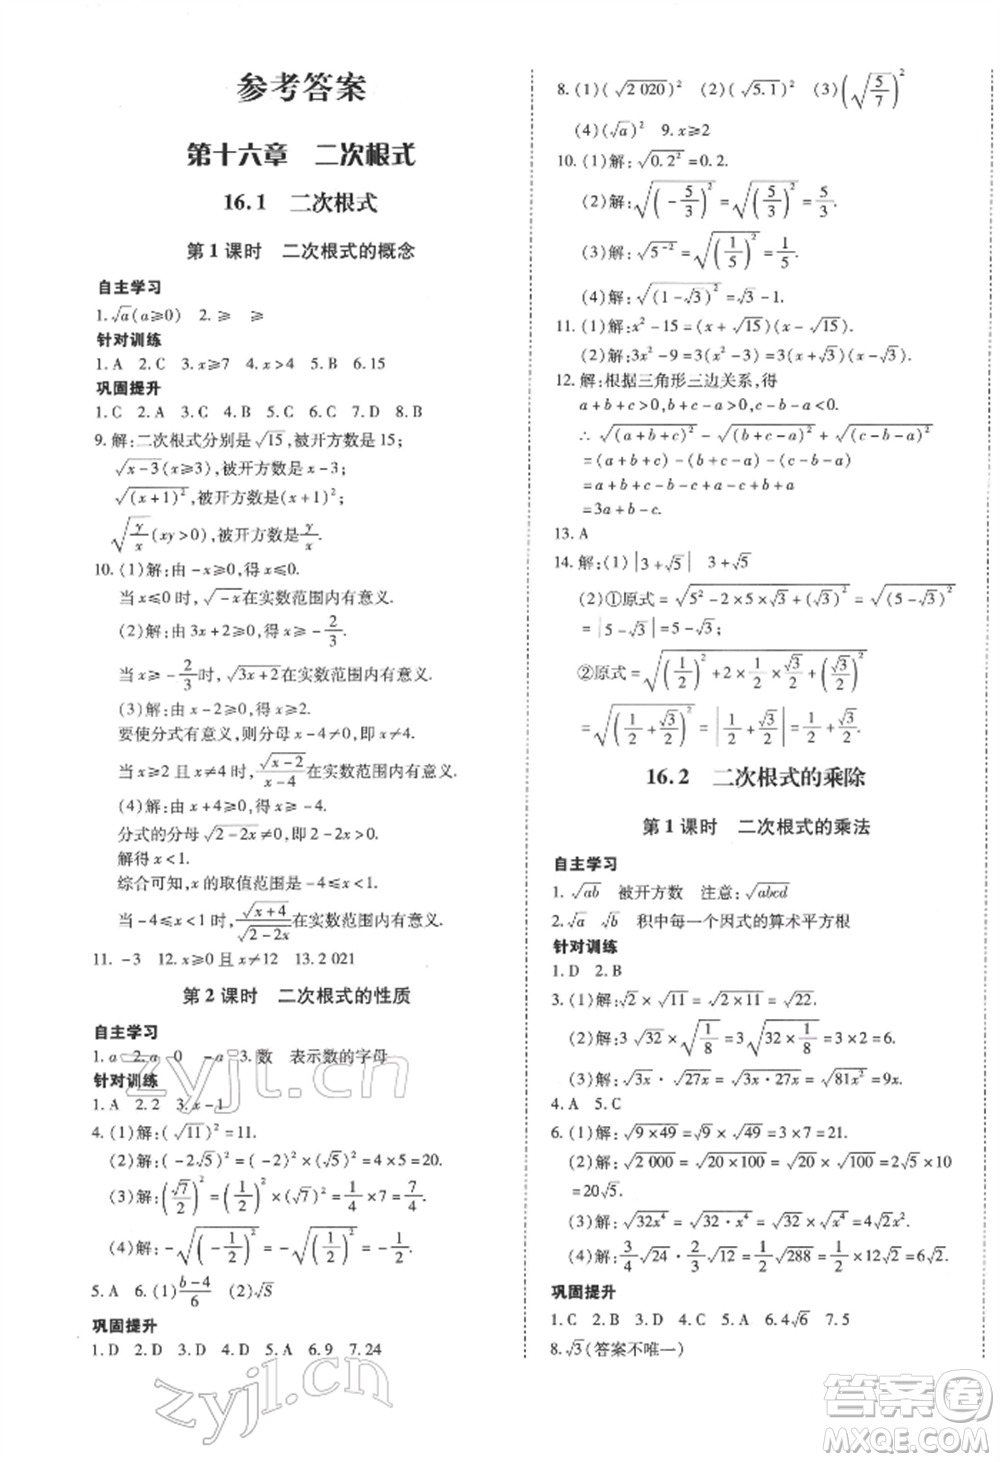 参考答案
第十六章 二次根式
16.1 二次根式
第1课时 二次根式的概念
自主学习
1.√a(a≥0) 2.≥ ≥
针对训练
1.A 2.C 3.x≥7 4.x>4 5.B 6.15
巩固提升
1.C 2.A 3.C 4.B 5.C 6.D 7.D 8.B
9.解:二次根式分别是√15,被开方数是15;
√(x-3)(x≥3),被开方数是x-3;
√((x+1)²),被开方数是(x+1)²;
√(y/x)(xy>0),被开方数是y/x.
10.(1)解:由-x≥0,得x≤0.
当x≤0时,√(-x)在实数范围内有意义.
(2)解:由3x+2≥0,得x≥-2/3.
当x≥-2/3时,√(3x+2)在实数范围内有意义.
(3)解:由x-2≥0,得x≥2.
要使分式有意义,则分母x-4≠0,x≠4.
当x≥2且x≠4时,√(x-2)/(x-4)在实数范围内有意义.
(4)解:由x+4≥0,得x≥-4.
分式的分母√(2-2x)≠0,2-2x>0,
解得x<1.
综合可知,x的取值范围是-4≤x<1.
当-4≤x<1时,√(x+4)/√(2-2x)在实数范围内有意义.
11.-3 12.x≥0且x≠12 13.2 021
第2课时 二次根式的性质
自主学习
1.a 2.a 0 -a 3.数 表示数的字母
针对训练
1.A 2.2 3.x-1
4.(1)解:(√11)²=11.
(2)解:(-2√5)²=(-2)²×(√5)²=4×5=20.
(3)解:(√7/2)²=(1/2)²×(√7)²=1/4×7=7/4.
(4)解:-√((-1/2)²)=-√((1/2)²)=-1/2.
5.A 6.(1)(b-4)/6 (2)√S
巩固提升
1.D 2.A 3.D 4.D 5.A 6.9 7.24
8.(1)(√2 020)² (2)(√5.1)² (3)(√(5/7))²
(4)(√a)² 9.x≥2
10.(1)解:√(0.2²)=0.2.
(2)解:√((-5/3)²)=√((5/3)²)=5/3.
(3)解:√(5⁻²)=√((1/5)²)=1/5.
(4)解:√((1-√3)²)=√3-1.
11.(1)解:x²-15=(x+√15)(x-√15).
(2)解:3x²-9=3(x²-3)=3(x+√3)(x-√3).
12.解:根据三角形三边关系,得
a+b+c>0,b+c-a>0,c-b-a<0.
∴√((a+b+c)²)-√((b+c-a)²)+√((c-b-a)²)
=(a+b+c)-(b+c-a)-(c-b-a)
=a+b+c-b-c+a-c+b+a
=3a+b-c.
13.A
14.解:(1)|3+√5| 3+√5
(2)①原式=√(5²-2×5×√3+(√3)²)=√((5-√3)²)
=|5-√3|=5-√3;
②原式=√((1/2)²+2×1/2×√3/2+(√3/2)²)
=√((1/2+√3/2)²)=|1/2+√3/2|=1/2+√3/2.
16.2 二次根式的乘除
第1课时 二次根式的乘法
自主学习
1.√ab 被开方数 注意:√abcd
2.√a √b 积中每一个因式的算术平方根
针对训练
1.D 2.B
3.(1)解:√2×√11=√(2×11)=√22.
(2)解:3√32×√(1/8)=3√(32×1/8)=3×2=6.
(3)解:√3x·√27x=√(3x·27x)=√(81x²)=9x.
4.A 5.C
6.(1)解:√(9×49)=√9×√49=3×7=21.
(2)解:√2 000=√(20×100)=√20×√100=2√5×10
=20√5.
(3)解:√(32x⁴)=√(32·x⁴)=√32×√(x⁴)=4√2x².
(4)解:3/4√24·2/3√12=1/2√288=1/2×12√2=6√2.
巩固提升
1.C 2.B 3.D 4.D 5.A 6.4√6 7.5
8.√3(答案不唯一)
zyjl.cn
zyjl.cn
答案卷
MXQE.COM